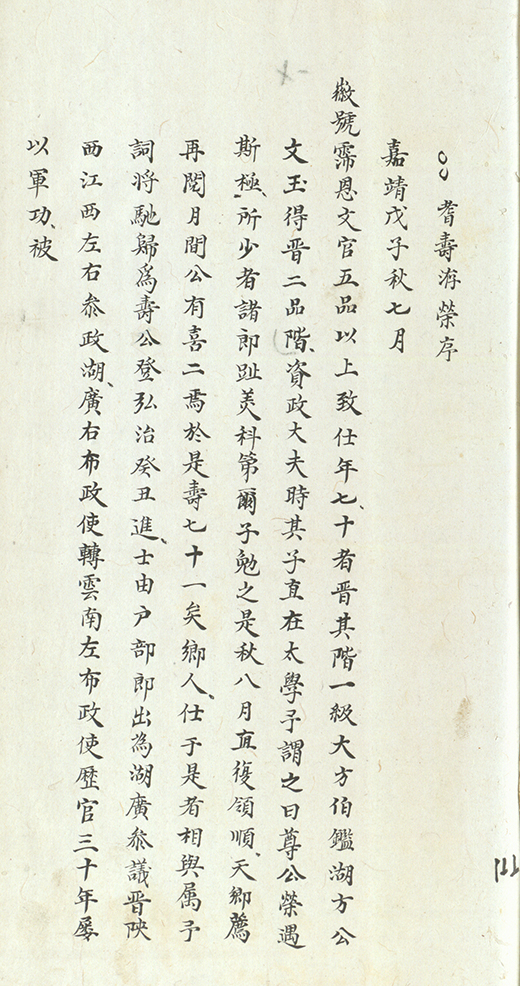 耆壽洊榮序
嘉靖戊子秋七月
徽號霈恩文官五品以上致仕年七十者晋其階一級大方伯鑑湖方公
文玉得晋二品階資政大夫時其子直在太學予謂之曰尊公榮遇
斯極所少者諸郎趾美科第爾子勉之是秋八月直復領順天鄉薦
再閱月間公有喜二焉於是壽七十一矣鄉人仕于是者相與属予
詞将馳歸爲壽公登弘治癸丑進士由户部郎出為湖廣叅議晋陜
西江西左右叅政湖廣右布政使轉雲南左布政使歷官三十年屡
以軍功被